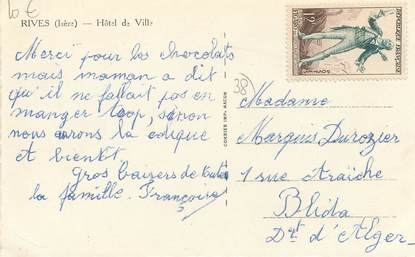 10 €
RIVES (Isère) — Hôtel de Ville
Merci pour les chocolats
mais maman a dit
qu'il ne fallait pas en
manger trop, sinon
nous aurons la colique
A bientôt
Gros baisers de toute
la famille. Françoise
COURIER IMP. MACON
38
12F
Madame
Marquis Durozier
1 rue Araïche
Blida
Dt d'Alger